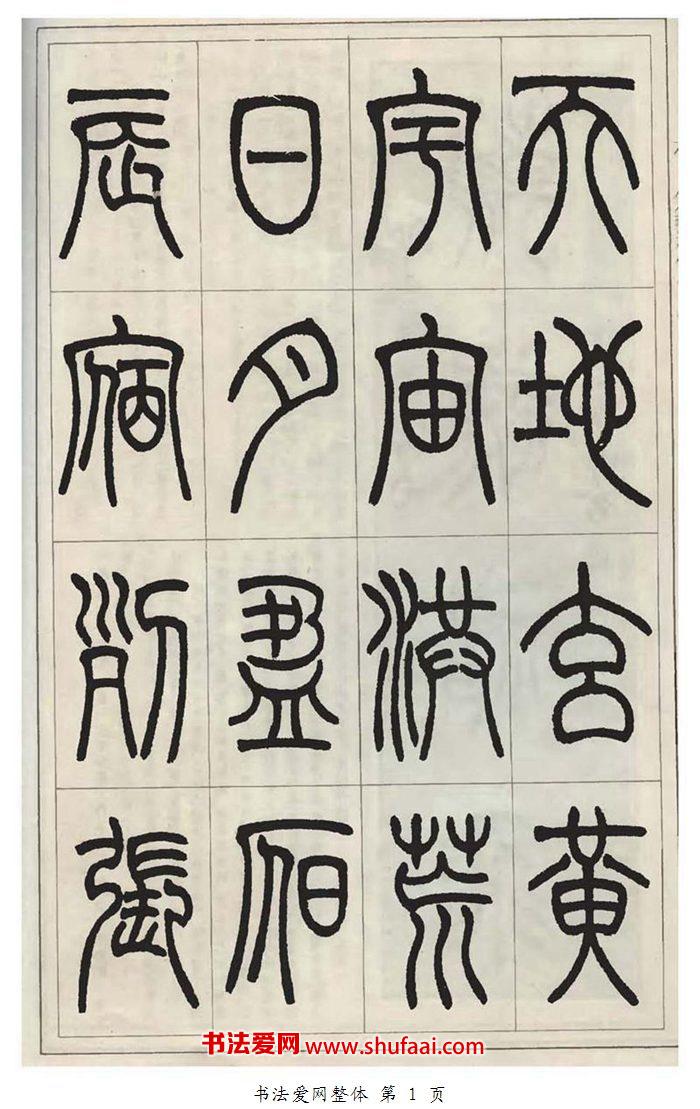 天地玄黃
宇宙洪荒
日月盈昃
辰宿列張
书法爱网www.shufaai.com
书法爱网整体 第 1 页